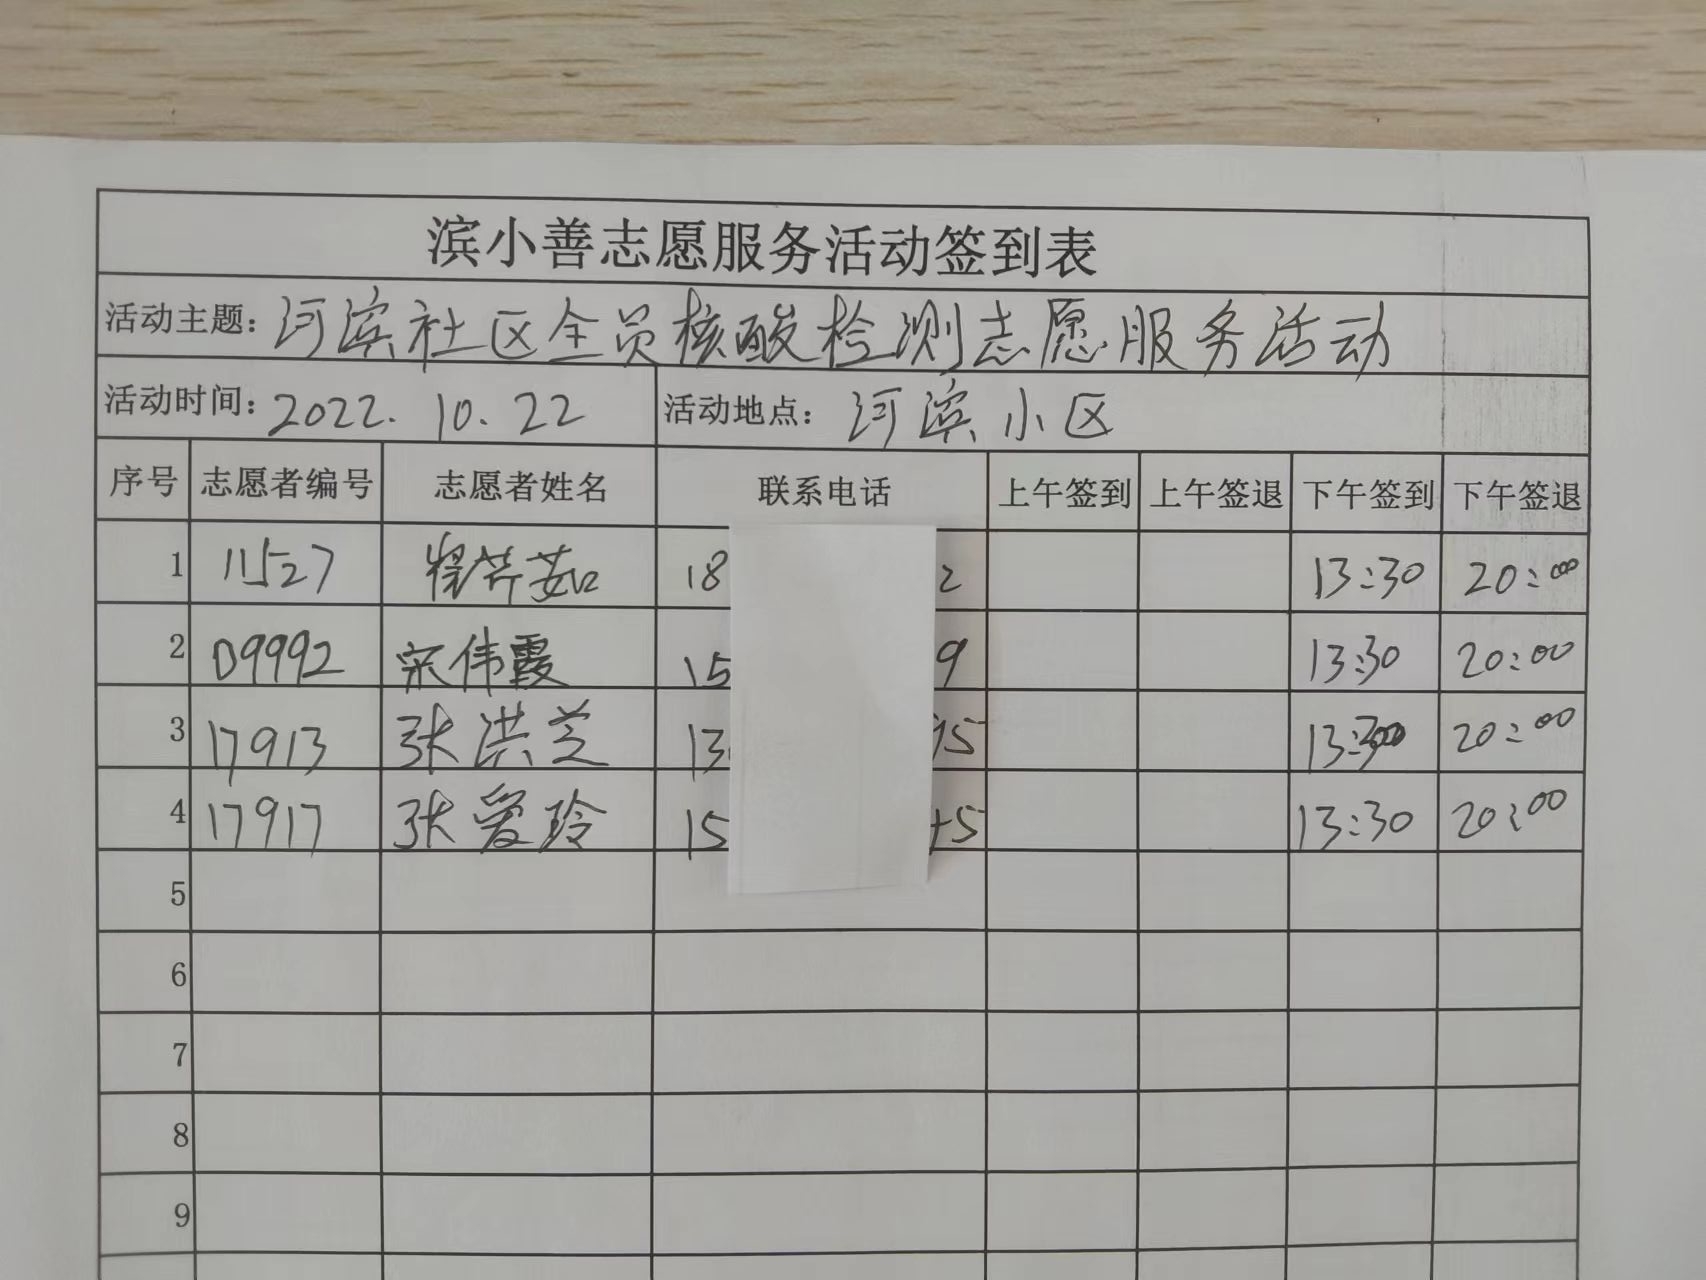 滨小善志愿服务活动签到表
活动主题: 河滨社区全员核酸检测志愿服务活动
活动时间: 2022.10.22 活动地点: 河滨小区
序号 志愿者编号 志愿者姓名 联系电话 上午签到 上午签退 下午签到 下午签退
1 11527 18 2 13:30 20:00
2 09992 宋伟霞 15 9 13:30 20:00
3 17913 张洪芝 13 15 13:30 20:00
4 17917 张爱玲 15 5 13:30 20:00
5
6
7
8
9